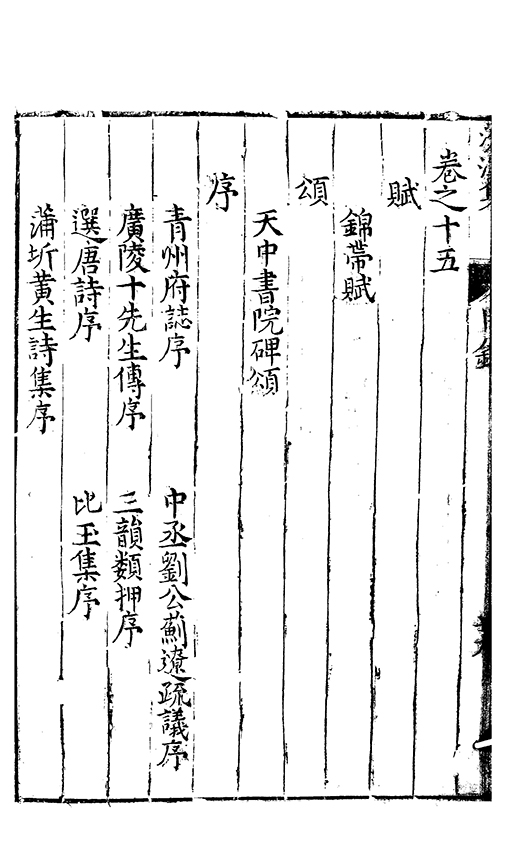 卷之十五
賦
錦帶賦
頌
天中書院碑頌
序
青州府誌序
中丞劉公薊遼疏議序
廣陵十先生傳序
三韻類押序
選唐詩序
比玉集序
蒲圻黃生詩集序